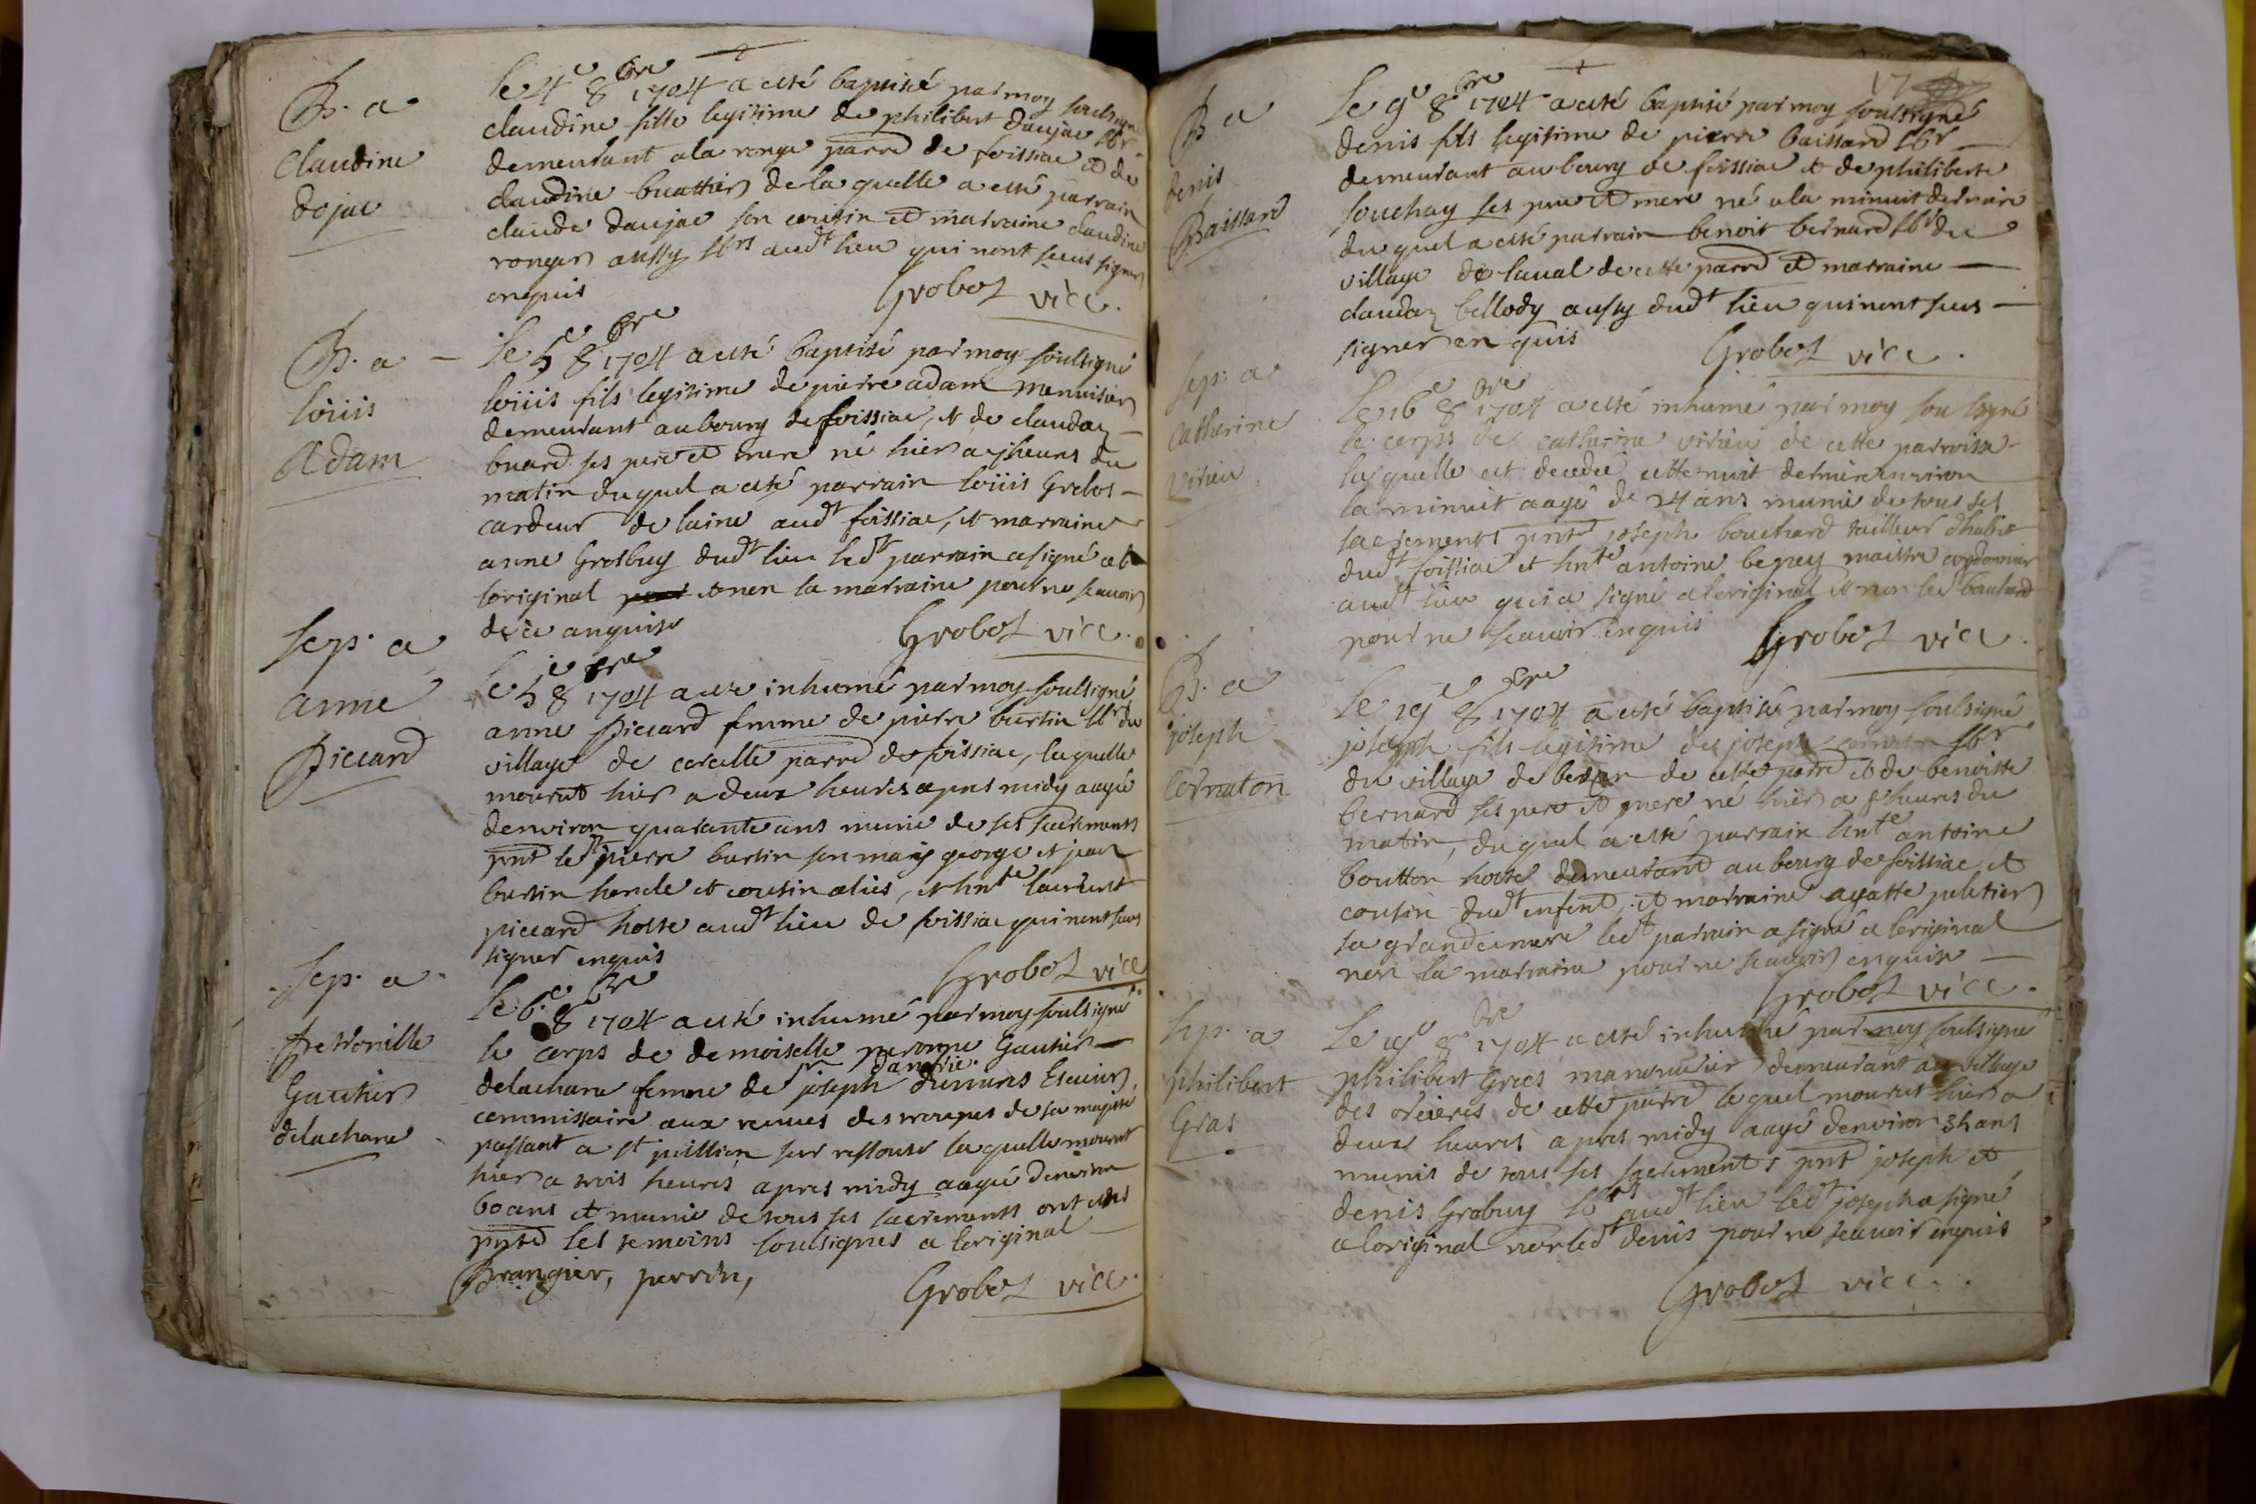 B. a
Claudine
dojac
le 4e 8bre 1704 a esté baptisé par moy soulsigné
claudine fille legitime de philibert daujac lbr
demeurant a la ronge parre de foissiac et de
claudine buattier de la quelle a esté parrain
claude daujac son cousin et marraine claudine
ronger aussy lbrs audt lieu qui nont sceus signer
enquis
Grobot vice.
B. a
loüis
Adam
le 5e 8bre 1704 a esté baptisé par moy soulsigné
loüis fils legitime de pierre adam menuisier
demeurant au bourg de foissiac, et de claudaz
buard ses pere et mere né hier a jheures du
matin du quel a esté parrain loüis Grobos
cardeur de laine audt foissiac, et marraine
anne Grosbuy dudt lieu ledt parrain a signé a
loriginal et non la marraine pour ne scavoir
de ce anquise
Grobot vice.
Sep. a
anne
Piccard
le 5e 8bre 1704 a esté inhumé par moy soulsigné
anne Piccard femme de pierre burtin lbr du
village de corcelle parre de foissiac, laquelle
mourut hier a deux heures apres midy aagée
denviron quarante ans munie de ses sacrements
pnt ledt pierre burtin son mary george et jean
burtin honcle et cousin alies, et hnte laurent
piccard hoste audt lieu de foissiac qui nont sceus
signer enquis
Grobot vice
Sep. a
Petronille
Gautier
delachane
Le 6e 8bre 1704 a esté inhumé par moy soulsigné
le corps de demoiselle peronne Gautier
danorie.
delachane femme de joseph dumures Escuier,
commissaire aux revues des trouppes de sa majesté
passant a st jullien sur ressouse laquelle mourut
hier a trois heures apres midy aagée denviron
60 ans et munie de tous ses sacrements ont estés
pnts les temoins soulsignes a loriginal
Prangier, perrin,
Grobot vice.
17
B. a
denis
Baissard
Le 9e 8bre 1704 a esté baptisé par moy soulsigné
denis fils legitime de pierre baissard lbr
demeurant au bourg de foissiac et de philiberte
souchay ses pere et mere né a la minuit derniere
du quel a esté parrain benoit bernard lbr du
village de laval de cette parre et marraine
claudaz bellody aussy dudt lieu qui nont sceus
signer en quis
Grobot vice.
Sep. a
Catherine
Virieu
Le 16e 8bre 1704 a esté inhumé par moy soulsigné
le corps de catherine virieu de cette parroisse
laquelle est decedée cette nuit derniere environ
la minuit aagé de 24 ans munie de tous ses
sacrements pnt joseph bouchard tailleur dhabit
dudt foissiac et hnte antoine begney maistre cordonnier
audt lieu qui a signé a loriginal et non ledt bouchard
pour ne scavoir enquis
Grobot vice.
B. a
joseph
Cornaton
Le 19e 8bre 1704 a esté baptisé par moy soulsigné
joseph fils legitime de joseph cornaton lbr
du village de de cette parre et de benoitte
bernard ses pere et mere né hier a 8 heures du
matin, du quel a esté parrain hnte antoine
boutton hoste demeurant au bourg de foissiac et
cousin dudt enfent, et marraine agatte peletier
sa grandemere ledt parrain a signé a loriginal
non la marraine pour ne scavoir enquise
Grobot vice.
Sep. a
philibert
Gras
Le 19e 8bre 1704 a esté inhumé par moy soulsigné
philibert Gras manouvrier demeurant au village
des orcieres de cette parre lequel mourut hier a
deux heures apres midy aagé denviron 35 ans
munis de tous ses sacrements pnt joseph et
denis Grobuy lbrs audt lieu ledt joseph a signé
a loriginal non ledt denis pour ne scavoir enquis
Grobot vice.